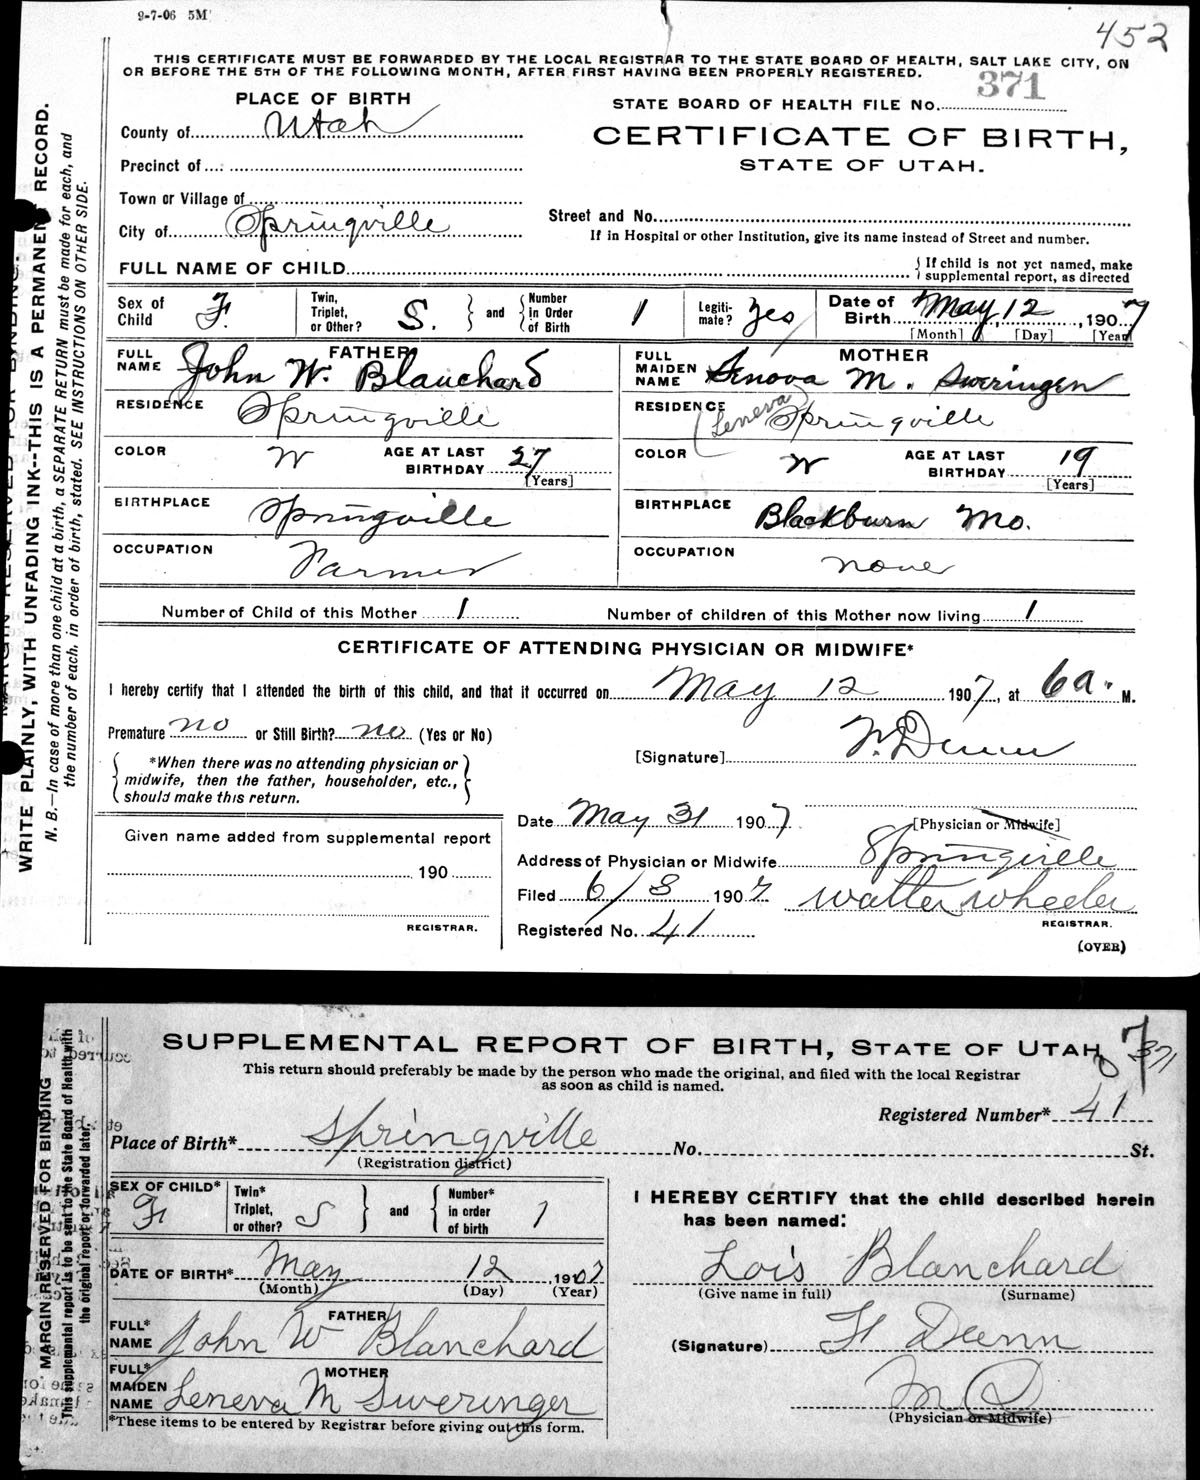 9-7-06 5M
452
THIS CERTIFICATE MUST BE FORWARDED BY THE LOCAL REGISTRAR TO THE STATE BOARD OF HEALTH, SALT LAKE CITY, ON
OR BEFORE THE 5TH OF THE FOLLOWING MONTH, AFTER FIRST HAVING BEEN PROPERLY REGISTERED.
PLACE OF BIRTH
STATE BOARD OF HEALTH FILE NO. 371
County of Utah
CERTIFICATE OF BIRTH,
STATE OF UTAH.
Precinct of
Town or Village of
City of Springville
Street and No.
If in Hospital or other Institution, give its name instead of Street and number.
FULL NAME OF CHILD
{ If child is not yet named, make
supplemental report, as directed
Sex of Child F. Twin, Triplet, or Other? S. } and { Number in Order of Birth 1 Legiti- mate? Yes Date of Birth May 12, 1907
[Month] [Day] [Year]
FATHER
FULL NAME John W. Blanchard
MOTHER
FULL MAIDEN NAME Lenova M. Sweringen
RESIDENCE Springville
RESIDENCE (Leneva) Springville
COLOR W AGE AT LAST BIRTHDAY 27 [Years]
COLOR W AGE AT LAST BIRTHDAY 19 [Years]
BIRTHPLACE Springville
BIRTHPLACE Blackburn Mo.
OCCUPATION Farmer
OCCUPATION none
Number of Child of this Mother 1 Number of children of this Mother now living 1
CERTIFICATE OF ATTENDING PHYSICIAN OR MIDWIFE*
I hereby certify that I attended the birth of this child, and that it occurred on May 12 1907, at 6 a. M.
Premature no or Still Birth? no (Yes or No)
[Signature] F. Dunn
{ *When there was no attending physician or
midwife, then the father, householder, etc.,
should make this return. }
Date May 31 1907
[Physician or Midwife]
Given name added from supplemental report
Address of Physician or Midwife Springville
190
Filed 6/8 1907 Walter Wheeler
REGISTRAR.
REGISTRAR.
Registered No. 41
(OVER)
MARGIN RESERVED FOR BINDING.
WRITE PLAINLY, WITH UNFADING INK--THIS IS A PERMANENT RECORD.
N. B.—In case of more than one child at a birth, a SEPARATE RETURN must be made for each, and
the number of each, in order of birth, stated. SEE INSTRUCTIONS ON OTHER SIDE.
SUPPLEMENTAL REPORT OF BIRTH, STATE OF UTAH
07
371
This return should preferably be made by the person who made the original, and filed with the local Registrar
as soon as child is named.
Registered Number* 41
Place of Birth* Springville No. St.
(Registration district)
SEX OF CHILD* F Twin* Triplet, or other? S } and { Number* in order of birth 1
I HEREBY CERTIFY that the child described herein
has been named:
DATE OF BIRTH* May 12 1907
(Month) (Day) (Year)
Lois Blanchard
(Give name in full) (Surname)
FATHER
FULL* NAME John W Blanchard
(Signature) F Dunn
MOTHER
FULL* MAIDEN NAME Leneva M Sweringer
M D
(Physician or Midwife)
*These items to be entered by Registrar before giving out this form.
MARGIN RESERVED FOR BINDING
This supplemental report is to be sent to the State Board of Health with
the original report or forwarded later.